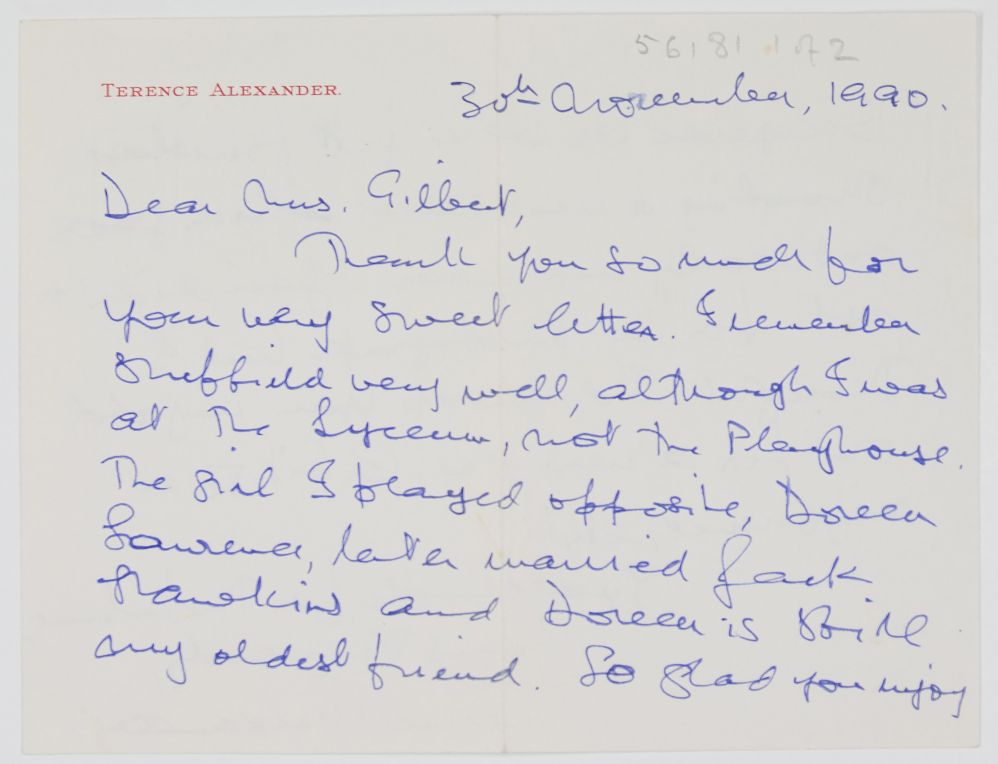 56181 1 of 2
TERENCE ALEXANDER.
30th November, 1990.
Dear Mrs. Gilbert,
Thank you so much for
your very sweet letter. I remember
Sheffield very well, although I was
at The Lyceum, not the Playhouse.
The girl I played opposite, Doreen
Lawrence, later married Jack
Hawkins and Doreen is still
my oldest friend. So glad you enjoy